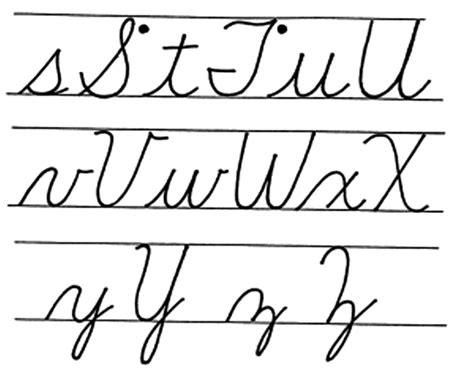 s S t T u U
v V w W x X
y Y z Z